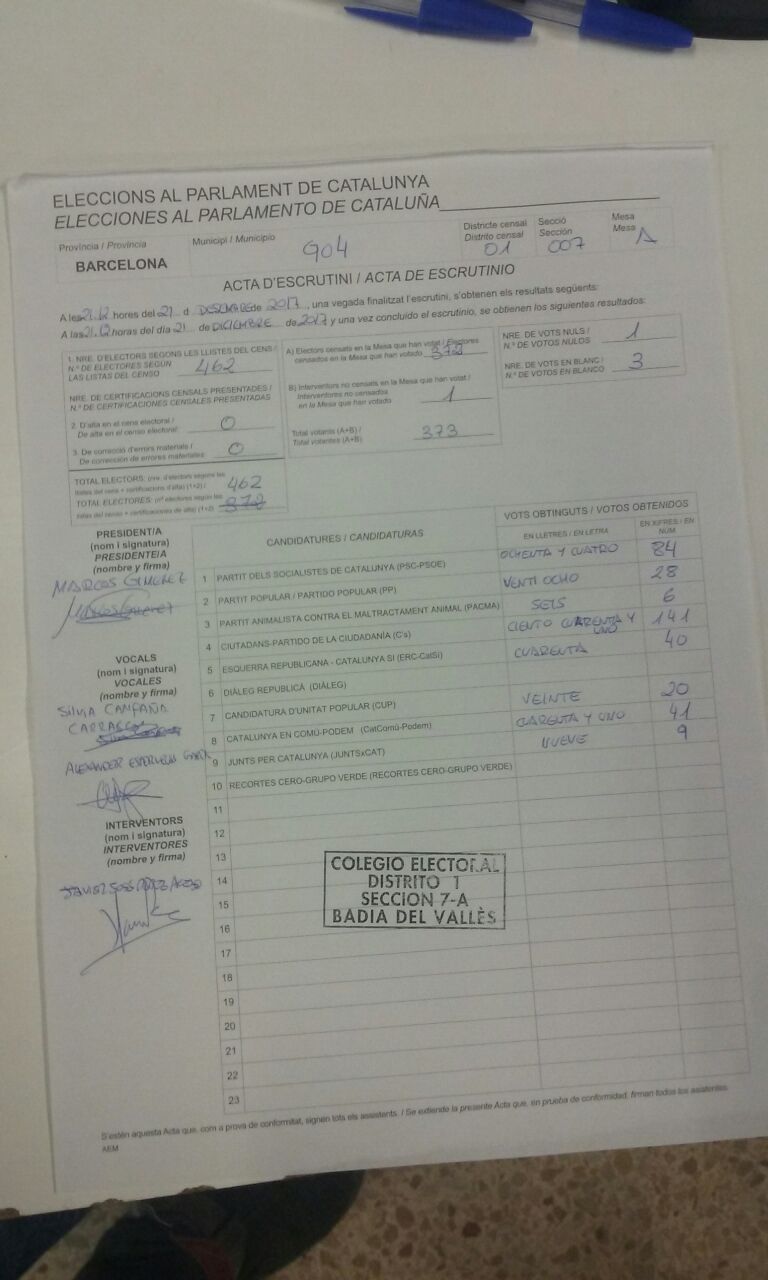 ELECCIONS AL PARLAMENT DE CATALUNYA
ELECCIONES AL PARLAMENTO DE CATALUÑA
Província / Provincia
BARCELONA
Municipi / Municipio
904
Districte censal
Distrito censal
01
Secció
Sección
007
Mesa
Mesa
A
ACTA D'ESCRUTINI / ACTA DE ESCRUTINIO
A les 21.12 hores del 21 d DESEMBRE de 2017, una vegada finalitzat l'escrutini, s'obtenen els resultats següents:
A las 21.12 horas del día 21 de DICIEMBRE de 2017 y una vez concluido el escrutinio, se obtienen los siguientes resultados:
1. NRE. D'ELECTORS SEGONS LES LLISTES DEL CENS /
N.º DE ELECTORES SEGÚN
LAS LISTAS DEL CENSO
462
NRE. DE CERTIFICACIONS CENSALS PRESENTADES /
N.º DE CERTIFICACIONES CENSALES PRESENTADAS
2. D'alta en el cens electoral /
De alta en el censo electoral:
0
3. De correcció d'errors materials /
De corrección de errores materiales:
0
TOTAL ELECTORS: (nre. d'electors segons les
llistes del cens + certificacions d'alta) (1+2) /
462
TOTAL ELECTORES: (nº electores según las
listas del censo + certificaciones de alta) (1+2)
372
A) Electors censats en la Mesa que han votat / Electores
censados en la Mesa que han votado
372
B) Interventors no censats en la Mesa que han votat /
Interventores no censados
en la Mesa que han votado
1
Total votants (A+B) /
Total votantes (A+B)
373
NRE. DE VOTS NULS /
N.º DE VOTOS NULOS
1
NRE. DE VOTS EN BLANC /
N.º DE VOTOS EN BLANCO
3
PRESIDENT/A
(nom i signatura)
PRESIDENTE/A
(nombre y firma)
MARCOS GIMENEZ
VOCALS
(nom i signatura)
VOCALES
(nombre y firma)
SILVIA CAMPAÑA
CARRASCO
ALEXANDER
INTERVENTORS
(nom i signatura)
INTERVENTORES
(nombre y firma)
JAVIER
CANDIDATURES / CANDIDATURAS
VOTS OBTINGUTS / VOTOS OBTENIDOS
EN LLETRES / EN LETRA
EN XIFRES / EN NÚM
1 PARTIT DELS SOCIALISTES DE CATALUNYA (PSC-PSOE) OCHENTA Y CUATRO 84
2 PARTIT POPULAR / PARTIDO POPULAR (PP) VENTI OCHO 28
3 PARTIT ANIMALISTA CONTRA EL MALTRACTAMENT ANIMAL (PACMA) SEIS 6
4 CIUTADANS-PARTIDO DE LA CIUDADANÍA (C's) CIENTO CUARENTA Y UNO 141
5 ESQUERRA REPUBLICANA - CATALUNYA SÍ (ERC-CatSí) CUARENTA 40
6 DIÀLEG REPUBLICÀ (DIÀLEG)
7 CANDIDATURA D'UNITAT POPULAR (CUP) VEINTE 20
8 CATALUNYA EN COMÚ-PODEM (CatComú-Podem) CUARENTA Y UNO 41
9 JUNTS PER CATALUNYA (JUNTSxCAT) NUEVE 9
10 RECORTES CERO-GRUPO VERDE (RECORTES CERO-GRUPO VERDE)
11
12
13
14
15
16
17
18
19
20
21
22
23
COLEGIO ELECTORAL
DISTRITO 1
SECCION 7-A
BADIA DEL VALLÈS
S'estén aquesta Acta que, com a prova de conformitat, signen tots els assistents. / Se extiende la presente Acta que, en prueba de conformidad, firman todos los asistentes.
AEM